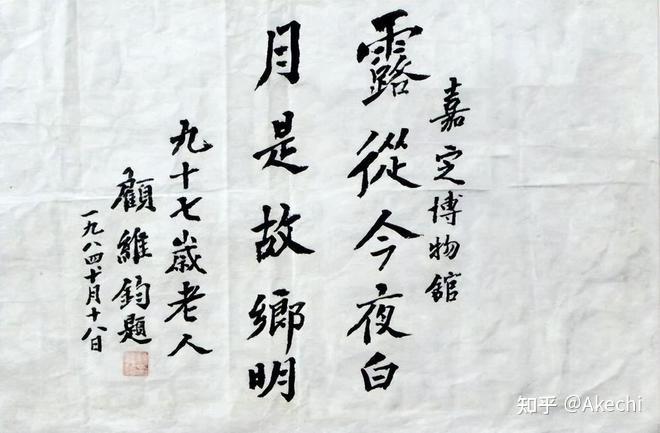 嘉定博物館
露從今夜白
月是故鄉明
九十七歲老人
顧維鈞題
一九八四十月十八日
知乎 @Akechi